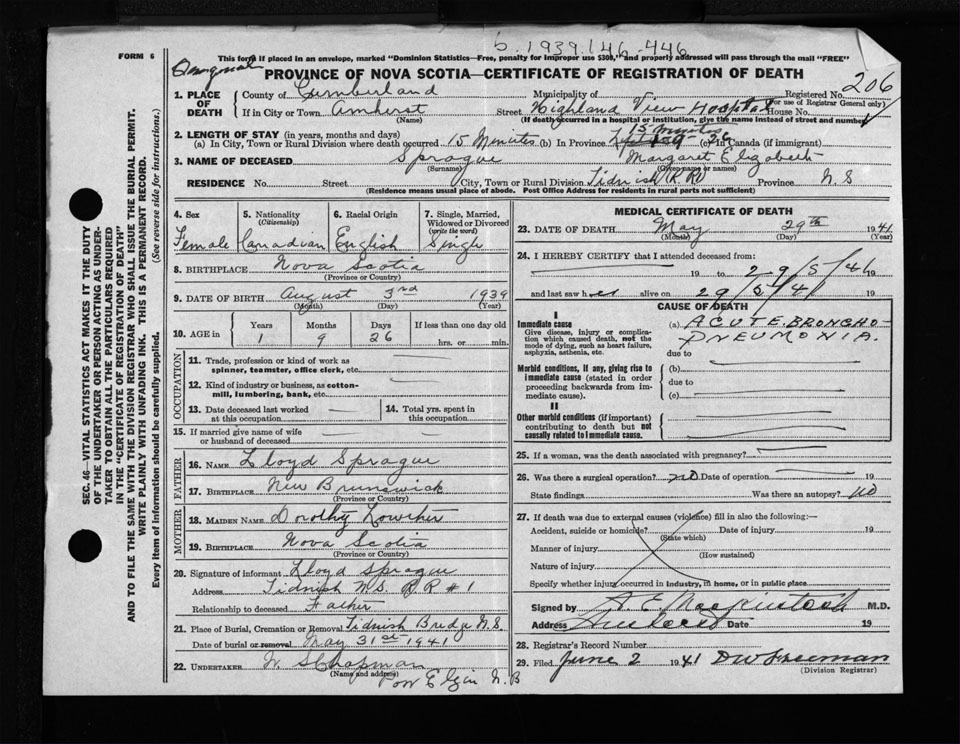 b. 1939.146-446
FORM 6
This form if placed in an envelope, marked "Dominion Statistics—Free, penalty for improper use $300," and properly addressed will pass through the mail "FREE"
PROVINCE OF NOVA SCOTIA—CERTIFICATE OF REGISTRATION OF DEATH
206
1. PLACE OF DEATH
County of Cumberland Municipality of Registered No.
(For use of Registrar General only)
If in City or Town Amherst Street Highland View Hospital House No.
(Name) (If death occurred in a hospital or institution, give the name instead of street and number)
2. LENGTH OF STAY (in years, months and days) 15 Minutes
(a) In City, Town or Rural Division where death occurred 15 Minutes (b) In Province (c) In Canada (if immigrant)
3. NAME OF DECEASED Sprague Margaret Elizabeth
(Surname) (Given name or names)
RESIDENCE No. Street City, Town or Rural Division Tidnish (R.R.) Province N.S
(Residence means usual place of abode. Post Office Address for residents in rural parts not sufficient)
4. Sex 5. Nationality (Citizenship) 6. Racial Origin 7. Single, Married, Widowed or Divorced (write the word)
Female Canadian English Single
8. BIRTHPLACE Nova Scotia
(Province or Country)
9. DATE OF BIRTH August 3rd 1939
(Month) (Day) (Year)
10. AGE in Years Months Days If less than one day old
1 9 26 hrs. or min.
OCCUPATION
11. Trade, profession or kind of work as spinner, teamster, office clerk, etc.
12. Kind of industry or business, as cotton-mill, lumbering, bank, etc.
13. Date deceased last worked at this occupation
14. Total yrs. spent in this occupation.
15. If married give name of wife or husband of deceased
FATHER
16. NAME Lloyd Sprague
17. BIRTHPLACE New Brunswick
(Province or Country)
MOTHER
18. MAIDEN NAME Dorothy
19. BIRTHPLACE Nova Scotia
(Province or Country)
20. Signature of informant Lloyd Sprague
Address Tidnish N.S. R.R #1
Relationship to deceased Father
21. Place of Burial, Cremation or Removal Tidnish Bridge N.S.
Date of burial or removal May 31st 1941
22. UNDERTAKER W S Chapman
(Name and address)
Port Elgin N.B
MEDICAL CERTIFICATE OF DEATH
23. DATE OF DEATH May 29th 1941
(Month) (Day) (Year)
24. I HEREBY CERTIFY that I attended deceased from:
19 to 29/5/41 19
and last saw h er alive on 29/5/41 19
CAUSE OF DEATH
I
Immediate cause
Give disease, injury or complication which caused death, not the mode of dying, such as heart failure, asphyxia, asthenia, etc.
(a) ACUTE BRONCHO-
PNEUMONIA.
due to
Morbid conditions, if any, giving rise to immediate cause (stated in order proceeding backwards from immediate cause).
(b)
due to
(c)
II
Other morbid conditions (if important) contributing to death but not causally related to immediate cause.
25. If a woman, was the death associated with pregnancy?
26. Was there a surgical operation? no Date of operation 19
State findings Was there an autopsy? no
27. If death was due to external causes (violence) fill in also the following:—
Accident, suicide or homicide? Date of injury 19
(State which)
Manner of injury
(How sustained)
Nature of injury
Specify whether injury occurred in industry, in home, or in public place
Signed by A. E. Mackintosh M.D.
Address Amherst Date 19
28. Registrar's Record Number
29. Filed June 2 1941 D W Freeman
(Division Registrar)
SEC. 46—VITAL STATISTICS ACT MAKES IT THE DUTY
OF THE UNDERTAKER OR PERSON ACTING AS UNDER-
TAKER TO OBTAIN ALL THE PARTICULARS REQUIRED
IN THE "CERTIFICATE OF REGISTRATION OF DEATH"
AND TO FILE THE SAME WITH THE DIVISION REGISTRAR WHO SHALL ISSUE THE BURIAL PERMIT.
WRITE PLAINLY WITH UNFADING INK. THIS IS A PERMANENT RECORD.
Every item of information should be carefully supplied. (See reverse side for instructions.)